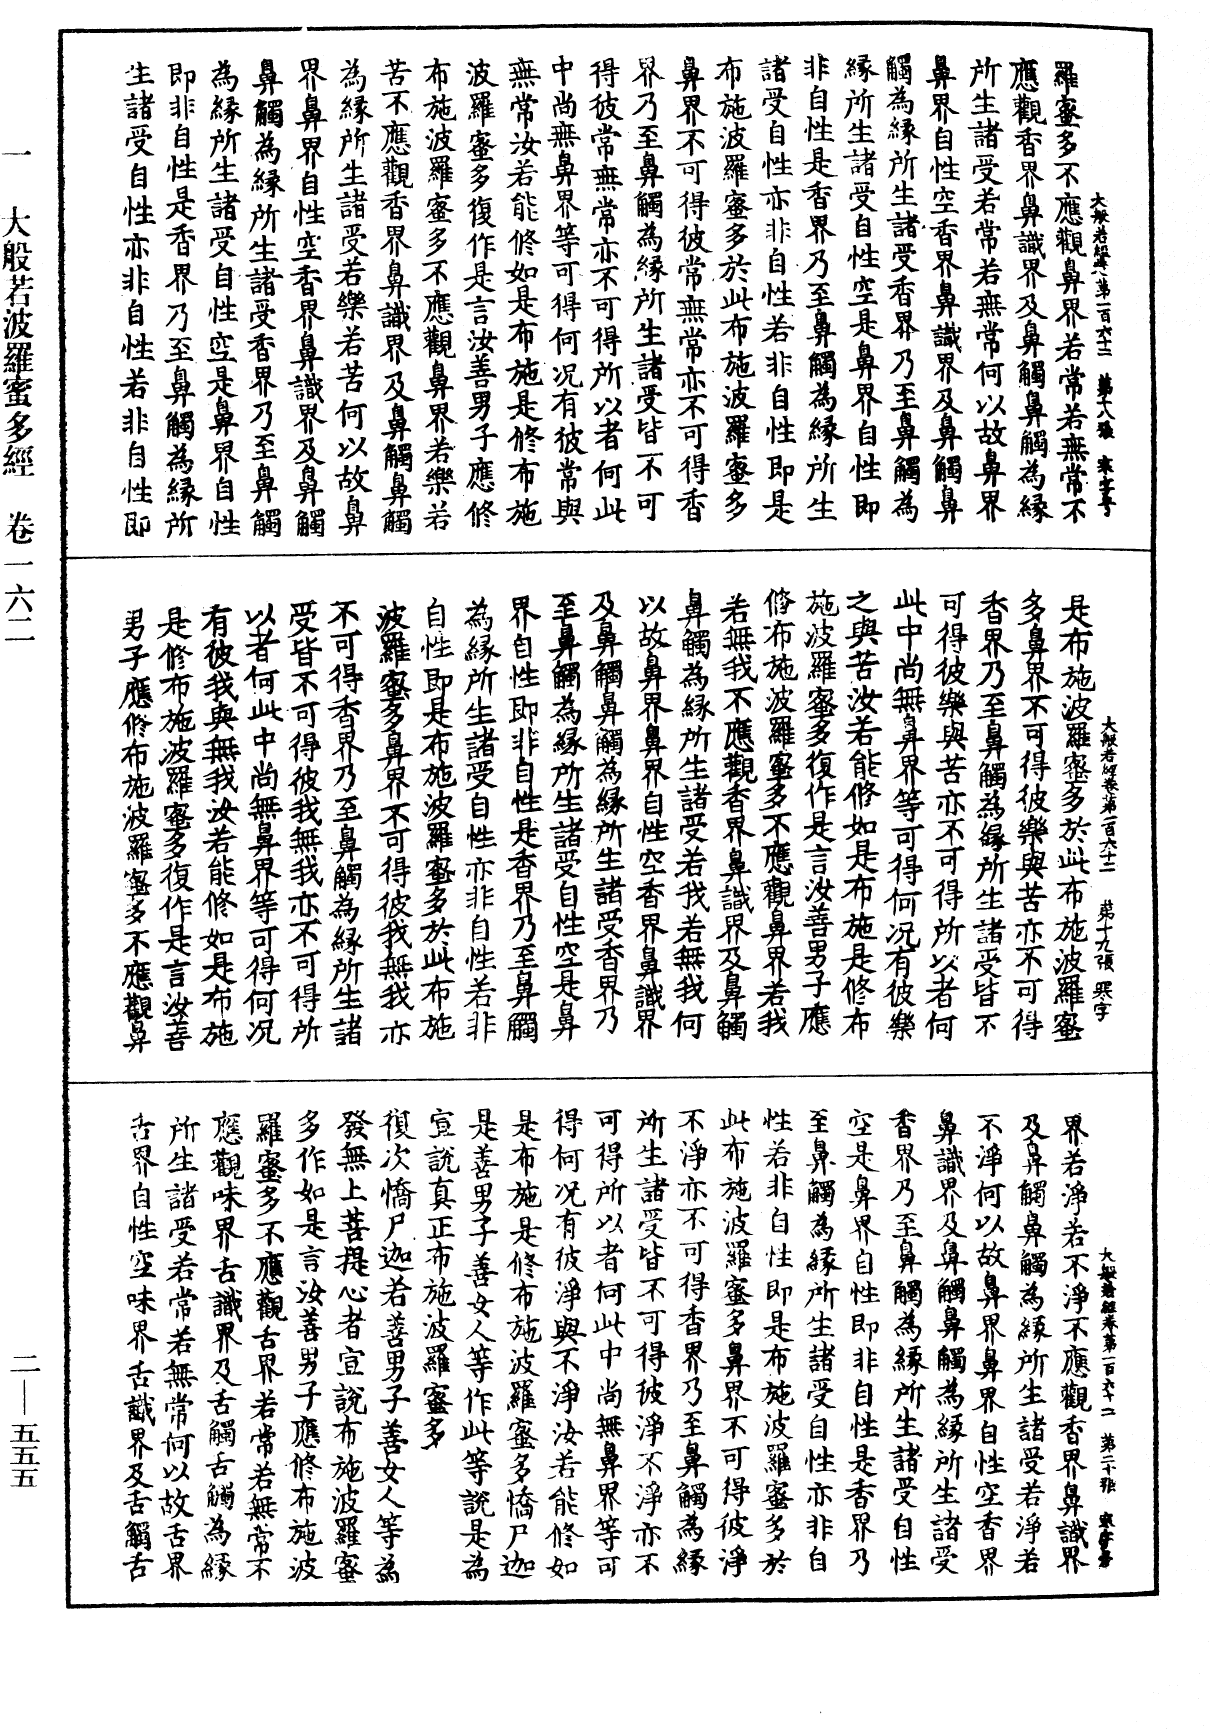 大般若經卷第一百六十二 第十八張 寒字号
羅蜜多不應觀鼻界若常若無常不
應觀香界鼻識界及鼻觸鼻觸為緣
所生諸受若常若無常何以故鼻界
鼻界自性空香界鼻識界及鼻觸鼻
觸為緣所生諸受香界乃至鼻觸為
緣所生諸受自性空是鼻界自性即
非自性是香界乃至鼻觸為緣所生
諸受自性亦非自性若非自性即是
布施波羅蜜多於此布施波羅蜜多
鼻界不可得彼常無常亦不可得香
界乃至鼻觸為緣所生諸受皆不可
得彼常無常亦不可得所以者何此
中尚無鼻界等可得何況有彼常與
無常汝若能修如是布施是修布施
波羅蜜多復作是言汝善男子應修
布施波羅蜜多不應觀鼻界若樂若
苦不應觀香界鼻識界及鼻觸鼻觸
為緣所生諸受若樂若苦何以故鼻
界鼻界自性空香界鼻識界及鼻觸
鼻觸為緣所生諸受香界乃至鼻觸
為緣所生諸受自性空是鼻界自性
即非自性是香界乃至鼻觸為緣所
生諸受自性亦非自性若非自性即
大般若經卷第一百六十二 第十九張 寒字
是布施波羅蜜多於此布施波羅蜜
多鼻界不可得彼樂與苦亦不可得
香界乃至鼻觸為緣所生諸受皆不
可得彼樂與苦亦不可得所以者何
此中尚無鼻界等可得何況有彼樂
之與苦汝若能修如是布施是修布
施波羅蜜多復作是言汝善男子應
修布施波羅蜜多不應觀鼻界若我
若無我不應觀香界鼻識界及鼻觸
鼻觸為緣所生諸受若我若無我何
以故鼻界鼻界自性空香界鼻識界
及鼻觸鼻觸為緣所生諸受香界乃
至鼻觸為緣所生諸受自性空是鼻
界自性即非自性是香界乃至鼻觸
為緣所生諸受自性亦非自性若非
自性即是布施波羅蜜多於此布施
波羅蜜多鼻界不可得彼我無我亦
不可得香界乃至鼻觸為緣所生諸
受皆不可得彼我無我亦不可得所
以者何此中尚無鼻界等可得何況
有彼我與無我汝若能修如是布施
是修布施波羅蜜多復作是言汝善
男子應修布施波羅蜜多不應觀鼻
大般若經卷第一百六十二 第二十張 寒字号
界若淨若不淨不應觀香界鼻識界
及鼻觸鼻觸為緣所生諸受若淨若
不淨何以故鼻界鼻界自性空香界
鼻識界及鼻觸鼻觸為緣所生諸受
香界乃至鼻觸為緣所生諸受自性
空是鼻界自性即非自性是香界乃
至鼻觸為緣所生諸受自性亦非自
性若非自性即是布施波羅蜜多於
此布施波羅蜜多鼻界不可得彼淨
不淨亦不可得香界乃至鼻觸為緣
所生諸受皆不可得彼淨不淨亦不
可得所以者何此中尚無鼻界等可
得何況有彼淨與不淨汝若能修如
是布施是修布施波羅蜜多憍尸迦
是善男子善女人等作此等說是為
宣說真正布施波羅蜜多
復次憍尸迦若善男子善女人等為
發無上菩提心者宣說布施波羅蜜
多作如是言汝善男子應修布施波
羅蜜多不應觀舌界若常若無常不
應觀味界舌識界及舌觸舌觸為緣
所生諸受若常若無常何以故舌界
舌界自性空味界舌識界及舌觸舌
一 大般若波羅蜜多經 卷一六二
二—五五五